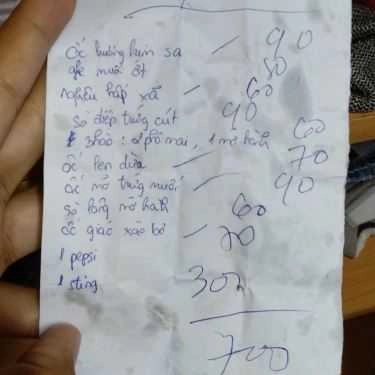 ốc hương hun sa — 90
ghẹ muối ớt 80
nghêu hấp xả — 60
sò điệp trứng cút 90
3 hào: 2 phô mai, 1 mỡ hành 60
ốc len dừa — 70
ốc mỡ trứng muối — 90
sò lông mỡ hành 60
ốc giác xào bơ — 70
1 pepsi
1 sting 30
700